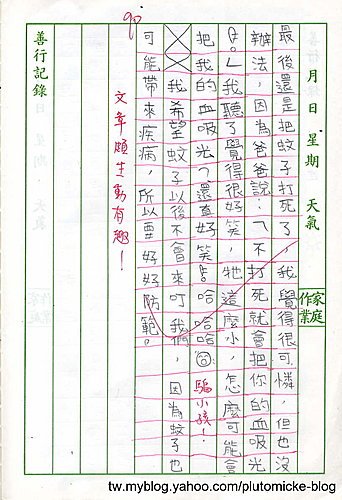 月 日 星期 天氣
家庭作業
最後還是把蚊子打死了，我覺得很可憐，但也沒
辦法，因為爸爸說：「不打死就會把你的血吸光
。」我聽了覺得很好笑，牠這麼小，怎麼可能會
把我的血吸光，還真好笑 哈哈哈 騙小孩！
我希望蚊子以後不會來叮我們，因為蚊子也
可能帶來疾病，所以要好好防範。
文章頗生動有趣！
90
善行記錄
tw.myblog.yahoo.com/plutomicke-blog